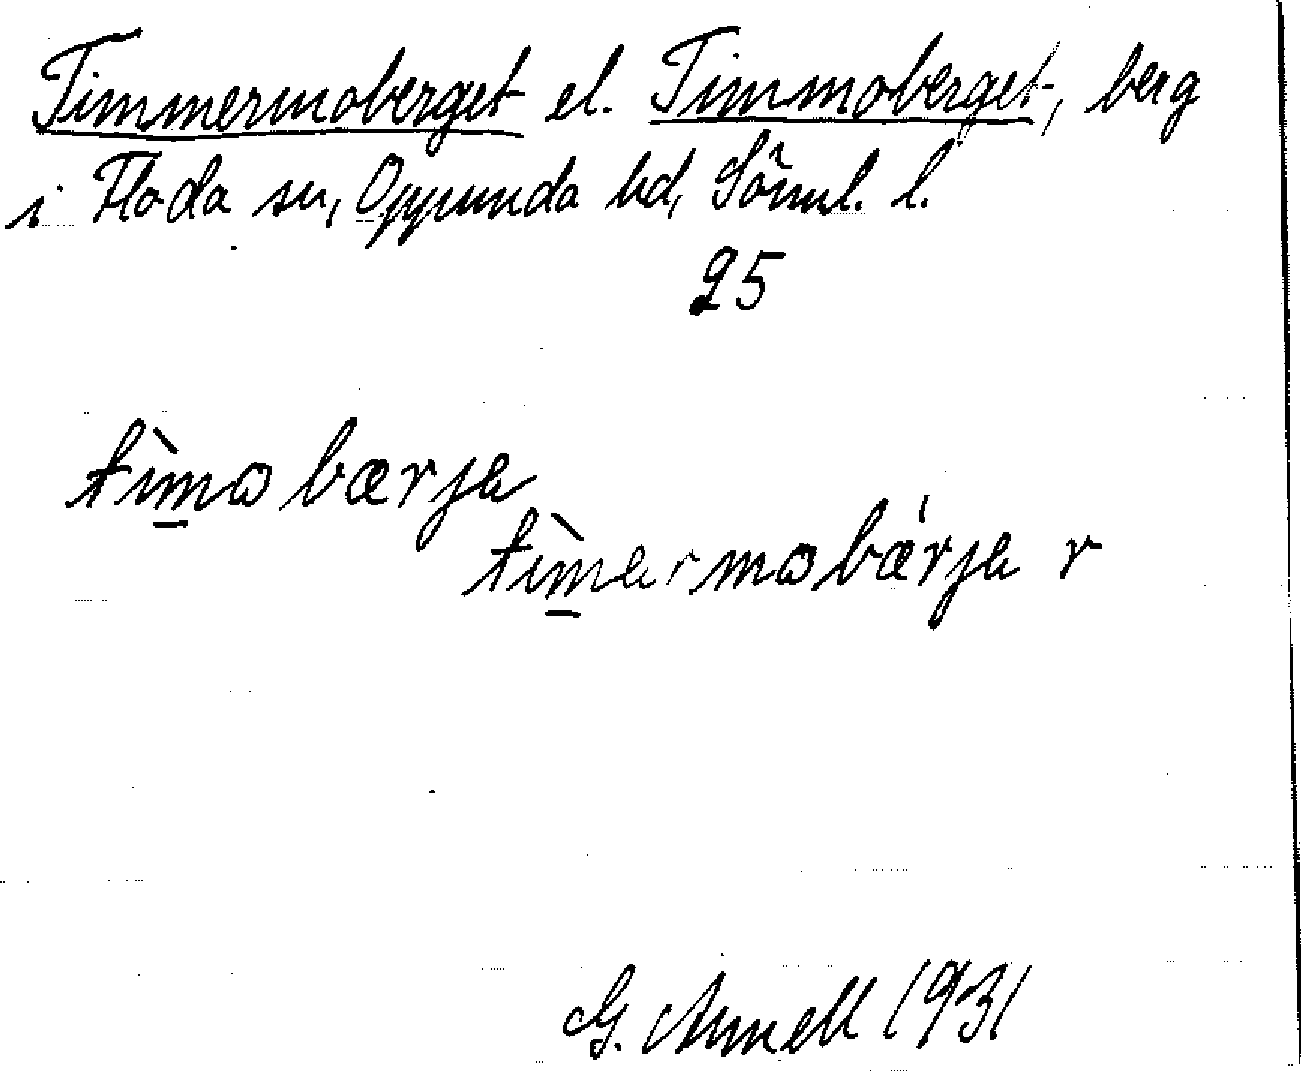 Timmermoberget el. Timmoberget, berg
i Floda sn, Oppunda hd, Sörml. l.
25
tìmobærja
tìmermobǽrja r
G. Arnell 1931